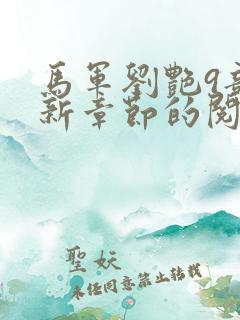 馬軍劉艷9章
新章節的閱
聖妖
未经同意禁止转载